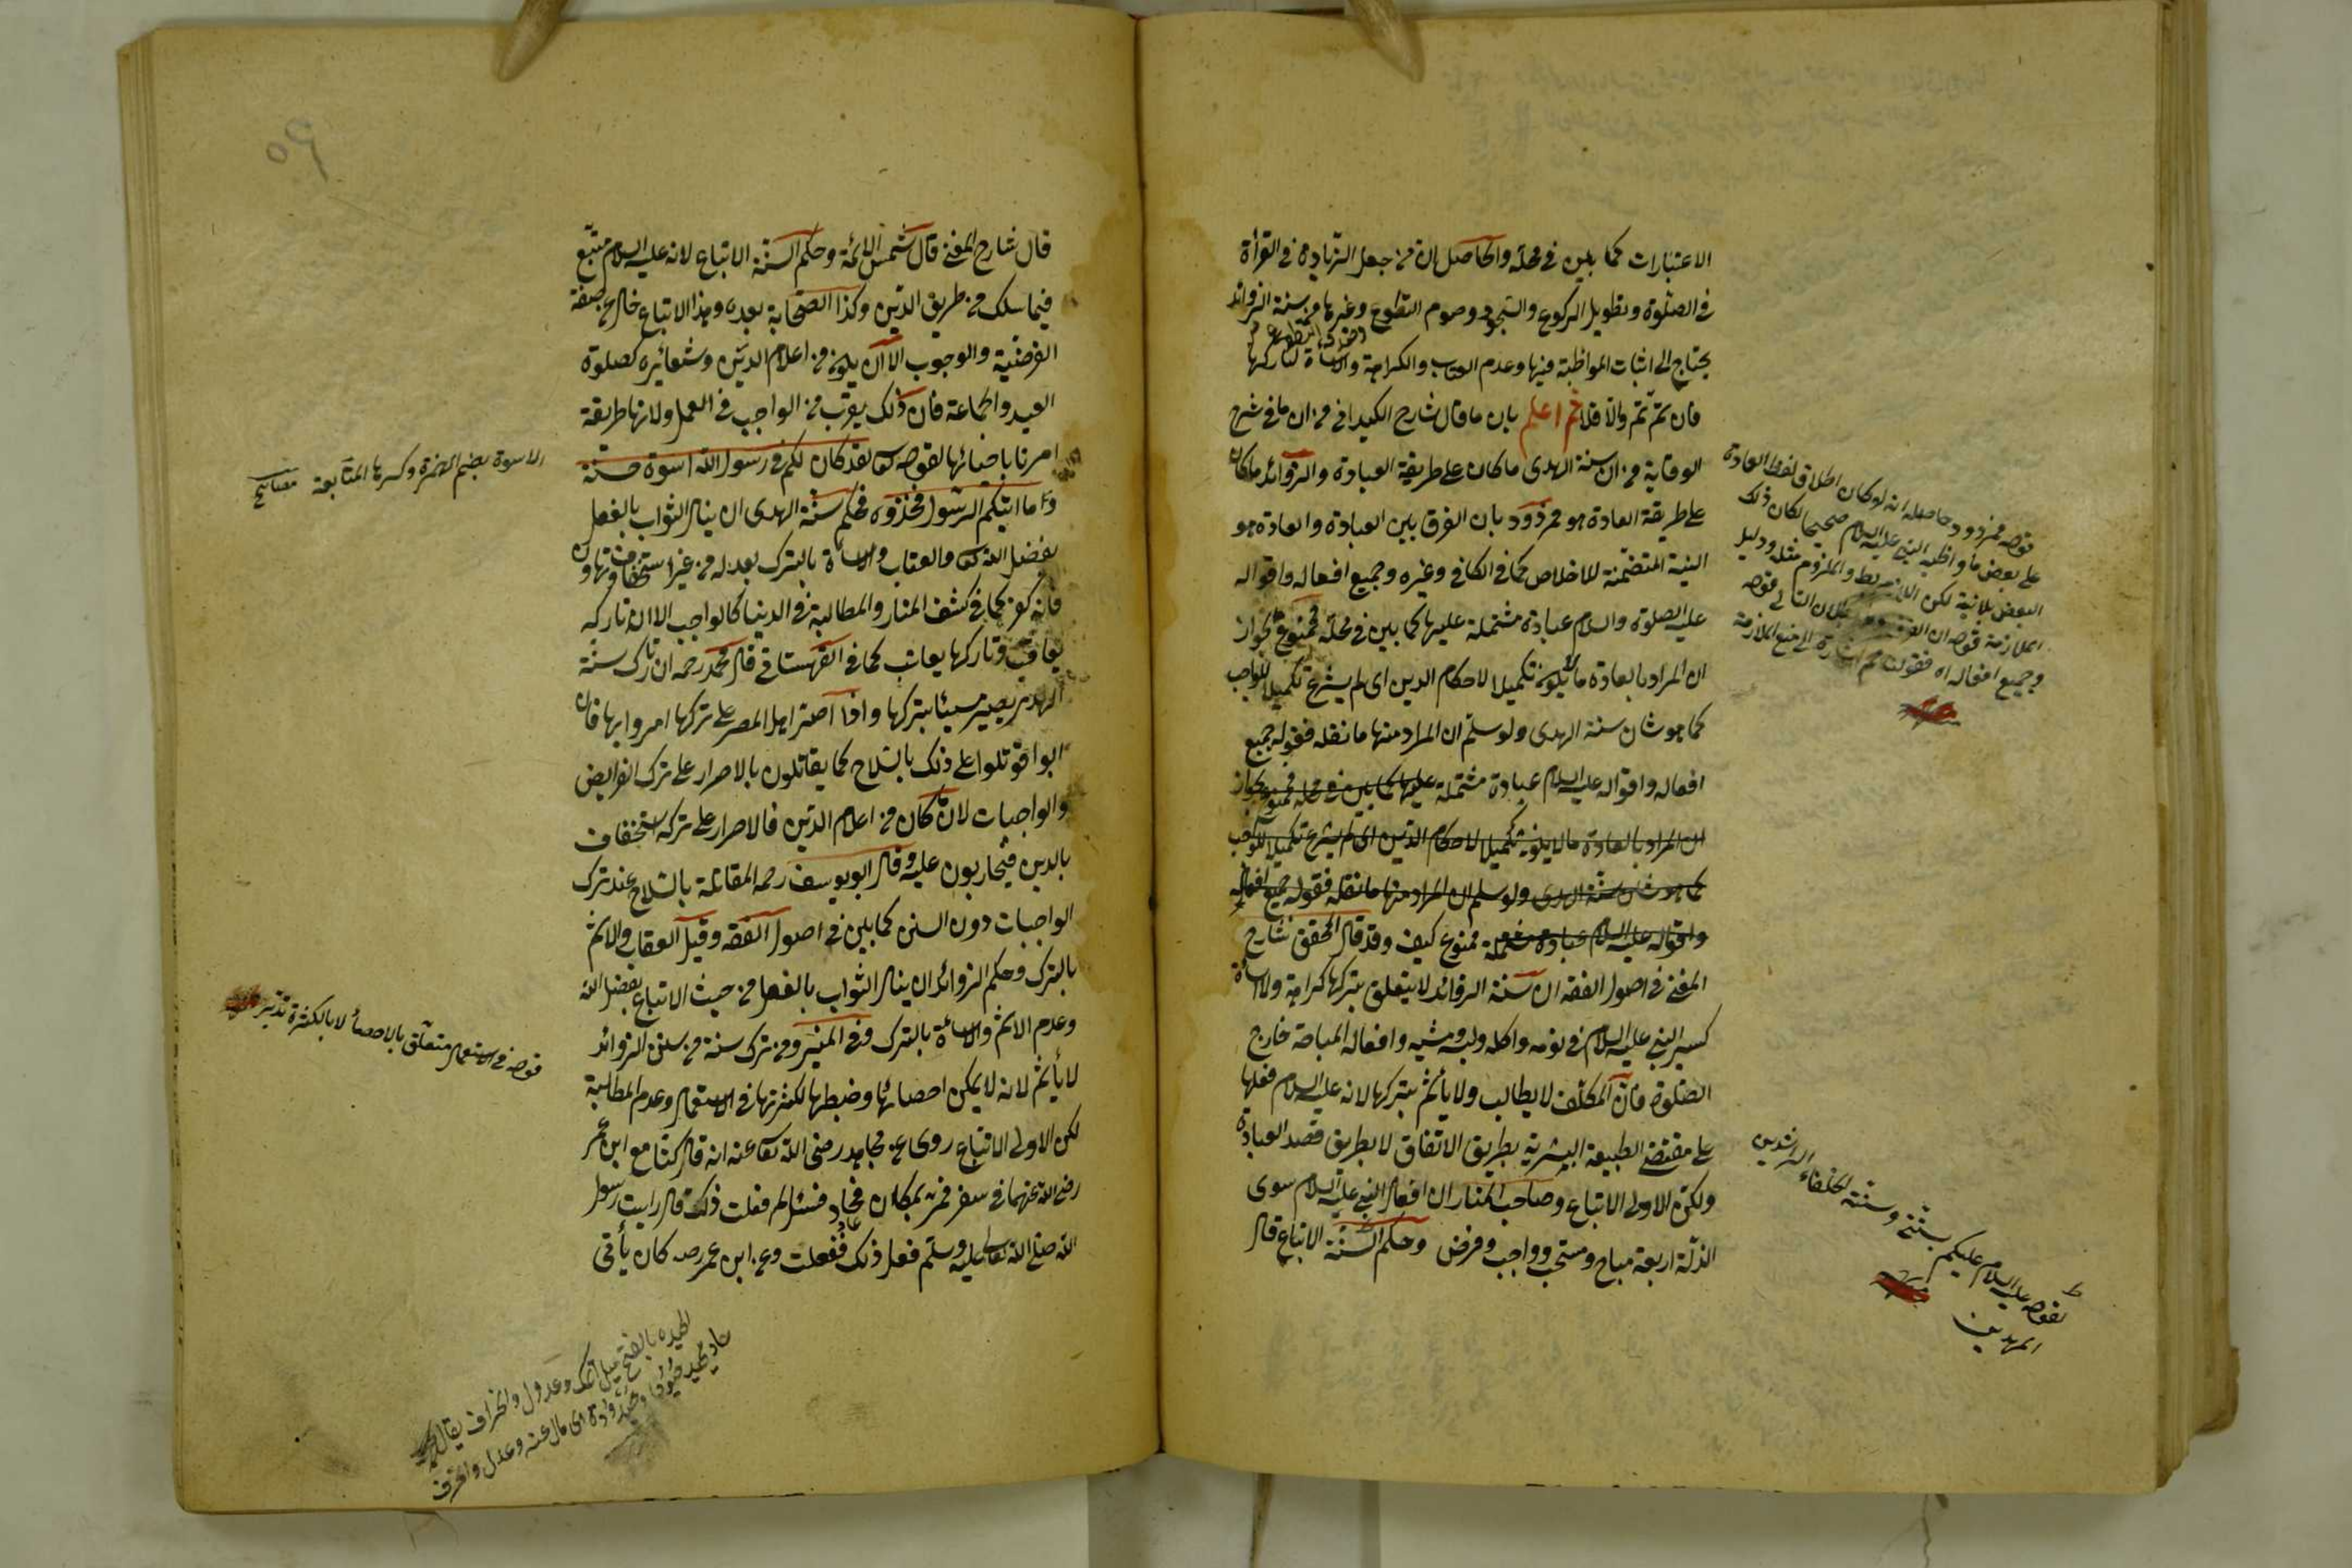 الاعتبارات كما بين في محله والحاصل ان من جعل الزيادة في القرأة
في الصلوة وتطويل الركوع والسجود وصوم التطوع وغيرها من سنة الزوائد
يحتاج الى اثبات المواظبة فيها وعدم العتاب والكراهة والاساءة لتاركها
فان تم تم والا فلا ثم اعلم بان ما قال شارح الكيداني من ان ما في شرح
الوقاية من ان سنة الهدى ما كان على طريقة العبادة والزوائد ما كان
على طريقة العادة هو مردود بان الفرق بين العبادة والعادة هو
النية المتضمنة للاخلاص كما في الكافي وغيره وجميع افعاله واقواله
عليه الصلوة والسلام عبادة مشتملة عليها كما بين في محله فممنوع لجواز
ان المراد بالعادة ما لا يكون تكميلا لاحكام الدين اى لم يشرع تكميلا للواجب
كما هو شان سنة الهدى ولو سلم ان المراد منها ما نقله فقوله جميع
افعاله واقواله عليه السلام عبادة مشتملة عليها كما بين في محله فممنوع لجواز
ان المراد بالعادة ما لا يكون تكميلا لاحكام الدين اى لم يشرع تكميلا للواجب
كما هو شان سنة الهدى ولو سلم ان المراد منها ما نقله فقوله جميع افعاله
واقواله عليه السلام عبادة مشتملة ممنوع كيف وقد قال المحقق شارح
المغنى في اصول الفقه ان سنة الزوائد لا يتعلق بتركها كراهة ولا اساءة
كسير النبي عليه السلام في نومه واكله ولبسه ومشيه وافعاله المباحة خارج
الصلوة فان المكلف لا يطالب ولا يأثم بتركها لانه عليه السلام فعلها
على مقتضى الطبيعة البشرية بطريق الاتفاق لا بطريق قصد العبادة
ولكن الاولى الاتباع وصاحب المنار ان افعال النبي عليه السلام سوى
الزلة اربعة مباح ومستحب وواجب وفرض وحكم السنة الاتباع قال
قوله فمردود حاصله انه لو كان اطلاق لفظ العادة
على بعض ما واظبه النبي عليه السلام صحيحا لكان ذلك
البعض بلا نية لكن اللازم بط والملزوم مثله ودليل
الملازمة قوله ان الفرق التالي قوله
وجميع افعاله اه فقولنا ثم اشارة الى منع الملازمة
لقوله عليه السلام عليكم بسنتي وسنة الخلفاء الراشدين
المهديين
قال شارح المغنى قال شمس الائمة وحكم السنة الاتباع لانه عليه السلام متبع
فيما سلك من طريق الدين وكذا الصحابة بعده وهذا الاتباع خال عن صفة
الفرضية والوجوب الا ان يكون من اعلام الدين وشعائره كصلوة
العيد والجماعة فان ذلك يقرب من الواجب في العمل ولانها طريقة
امرنا باحيائها لقوله تعالى لقد كان لكم في رسول الله اسوة حسنة
وما اتيكم الرسول فخذوه فحكم سنة الهدى ان ينال الثواب بالفعل
بفضل الله تعالى والعتاب والاساءة بالترك بعد له من غير استخفاف وتهاون
فانه كفر كما في كشف المنار والمطالبة في الدنيا كالواجب الا ان تاركه
يعاقب وتاركها يعاتب كما في القهستاني قال محمد رحمه ان تارك سنة
الهدى يصير مسيئا بتركها واذا اصر اهل المصر على تركها امروا بها فان
ابوا قوتلوا على ذلك بالسلاح كما يقاتلون بالاصرار على ترك الفرايض
والواجبات لان كان من اعلام الدين فالاصرار على تركه استخفاف
بالدين فيحاربون عليه وقال ابو يوسف رحمه المقاتلة بالسلاح عند ترك
الواجبات دون السنن كما بين في اصول الفقه وقيل العقاب والاثم
بالترك وحكم الزوائد ان ينال الثواب بالفعل من حيث الاتباع بفضل الله
وعدم الاثم والاساءة بالترك ففي المنير ومن ترك سنة من سنن الزوائد
لا يأثم لانه لا يمكن احصائها وضبطها لكثرتها في الاستعمال وعدم المطالبة
لكن الاولى الاتباع روى عن مجاهد رضى الله تعالى عنه انه قال كنا مع ابن عمر
رضى الله عنهما في سفر فمر بمكان فحاد فسئل لم فعلت ذلك قال رايت رسول
الله صلى الله تعالى عليه وسلم فعل ذلك ففعلت وعن ابن عمر رضه كان يأتى
الاسوة بضم الهمزة وكسرها المتابعة مصابيح
قوله في الاستعمال متعلق بالاحصاء لا بالكثرة تدبر
الحيدة بالفتح ميل اتمك وعدول وانحراف يقال
حاد يحيد حيودا وحيدودة اى مال عنه وعدل وانحرف